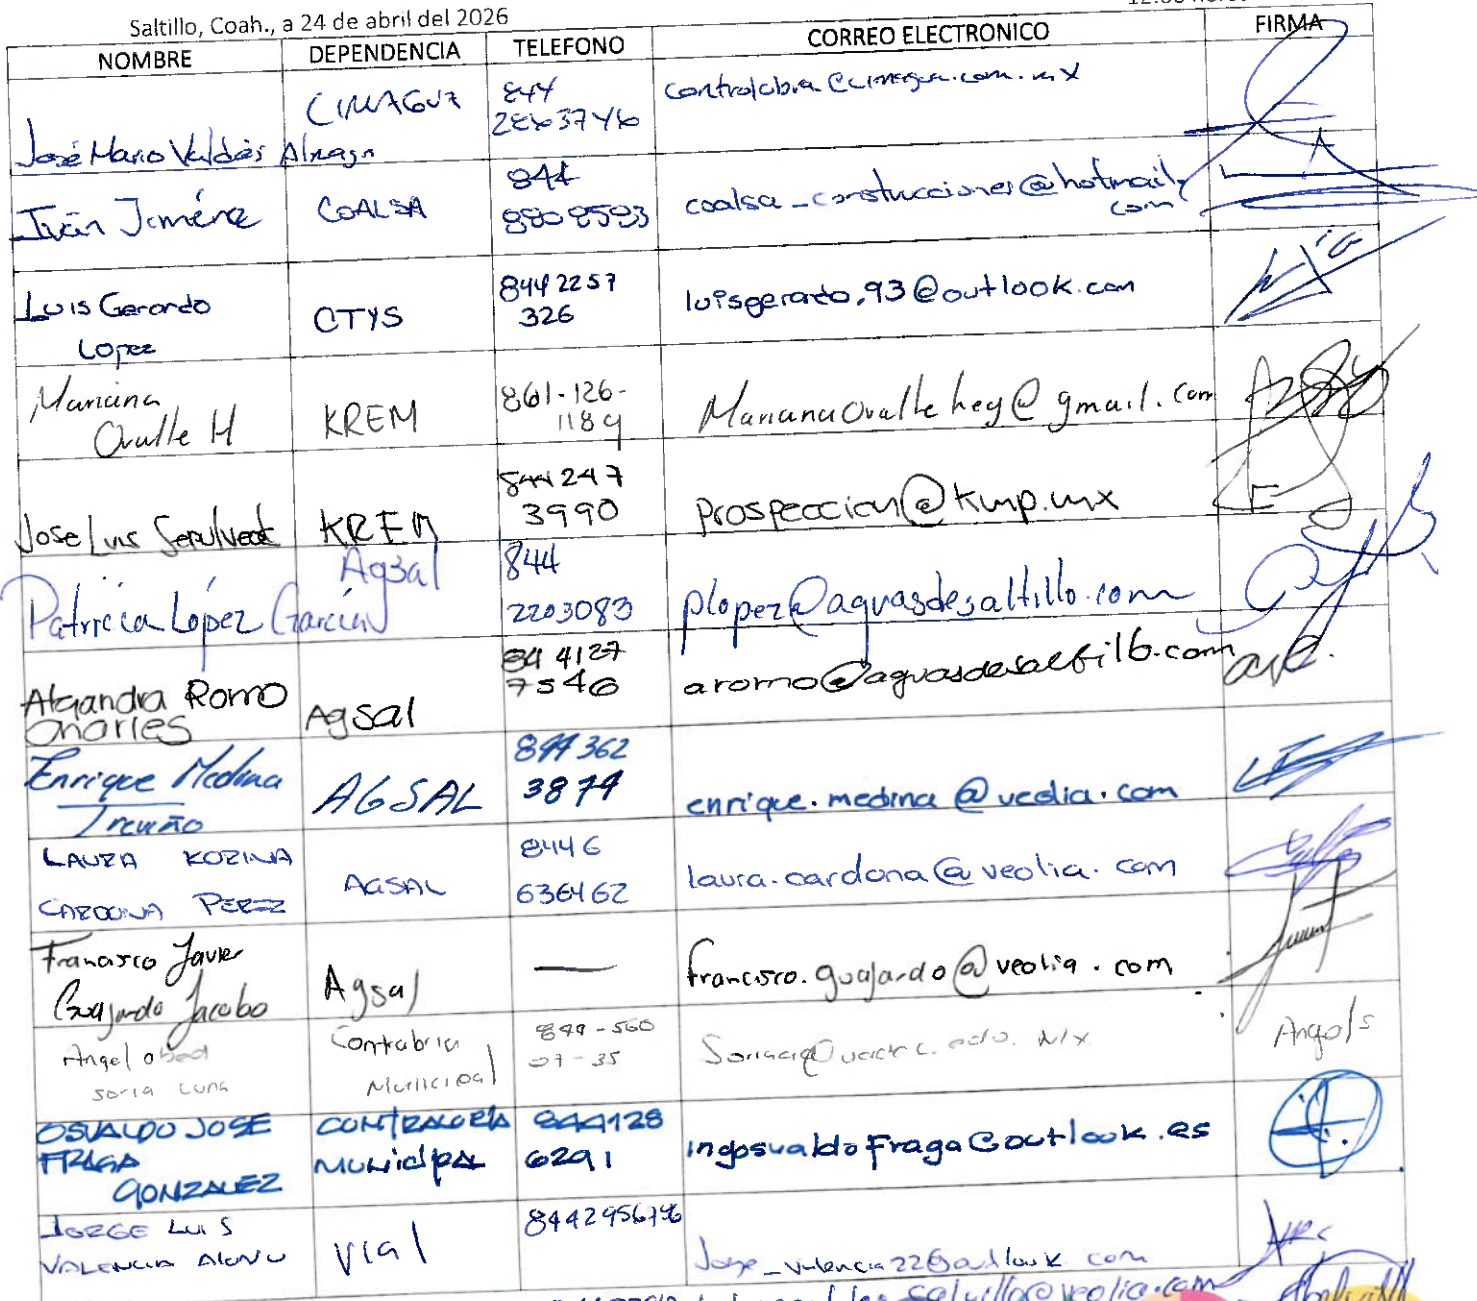 Saltillo, Coah., a 24 de abril del 2026
NOMBRE DEPENDENCIA TELEFONO CORREO ELECTRONICO FIRMA
José Mario Valdés CIMAGUA 844
Iván Jiménez COALSA 844 8808593 coalsa_construcciones@hotmail.com
Luis Gerardo Lopez CTYS 8442257 326 luisgerardo.93@outlook.com
Mariana Ovalle H KREM 861-126-1189 Marianaovallehey@gmail.com
Jose Luis Sepulveda KREM 844 247 3990 prospeccion@kmp.mx
Patricia López García Agsal 844 2203083 plopez@aguasdesaltillo.com
Alejandra Romo Onarles Agsal 844 4127 7546 aromo@aguasdesaltillo.com
Enrique Medina Treviño AGSAL 844 362 3874 enrique.medina@veolia.com
LAURA KORINA CARDONA PEREZ AGSAL 8446 636462 laura.cardona@veolia.com
Francisco Javier Guajardo Jacobo Agsal — francisco.guajardo@veolia.com
Angel obed soria luna Municipal 07-35
OSVALDO JOSE FRAGA GONZALEZ CONTRALORIA MUNICIPAL 844128 6291 ingosvaldofraga@outlook.es
JORGE LUIS VALENCIA Vial Jorge_valencia22@outlook.com
@veolia.com